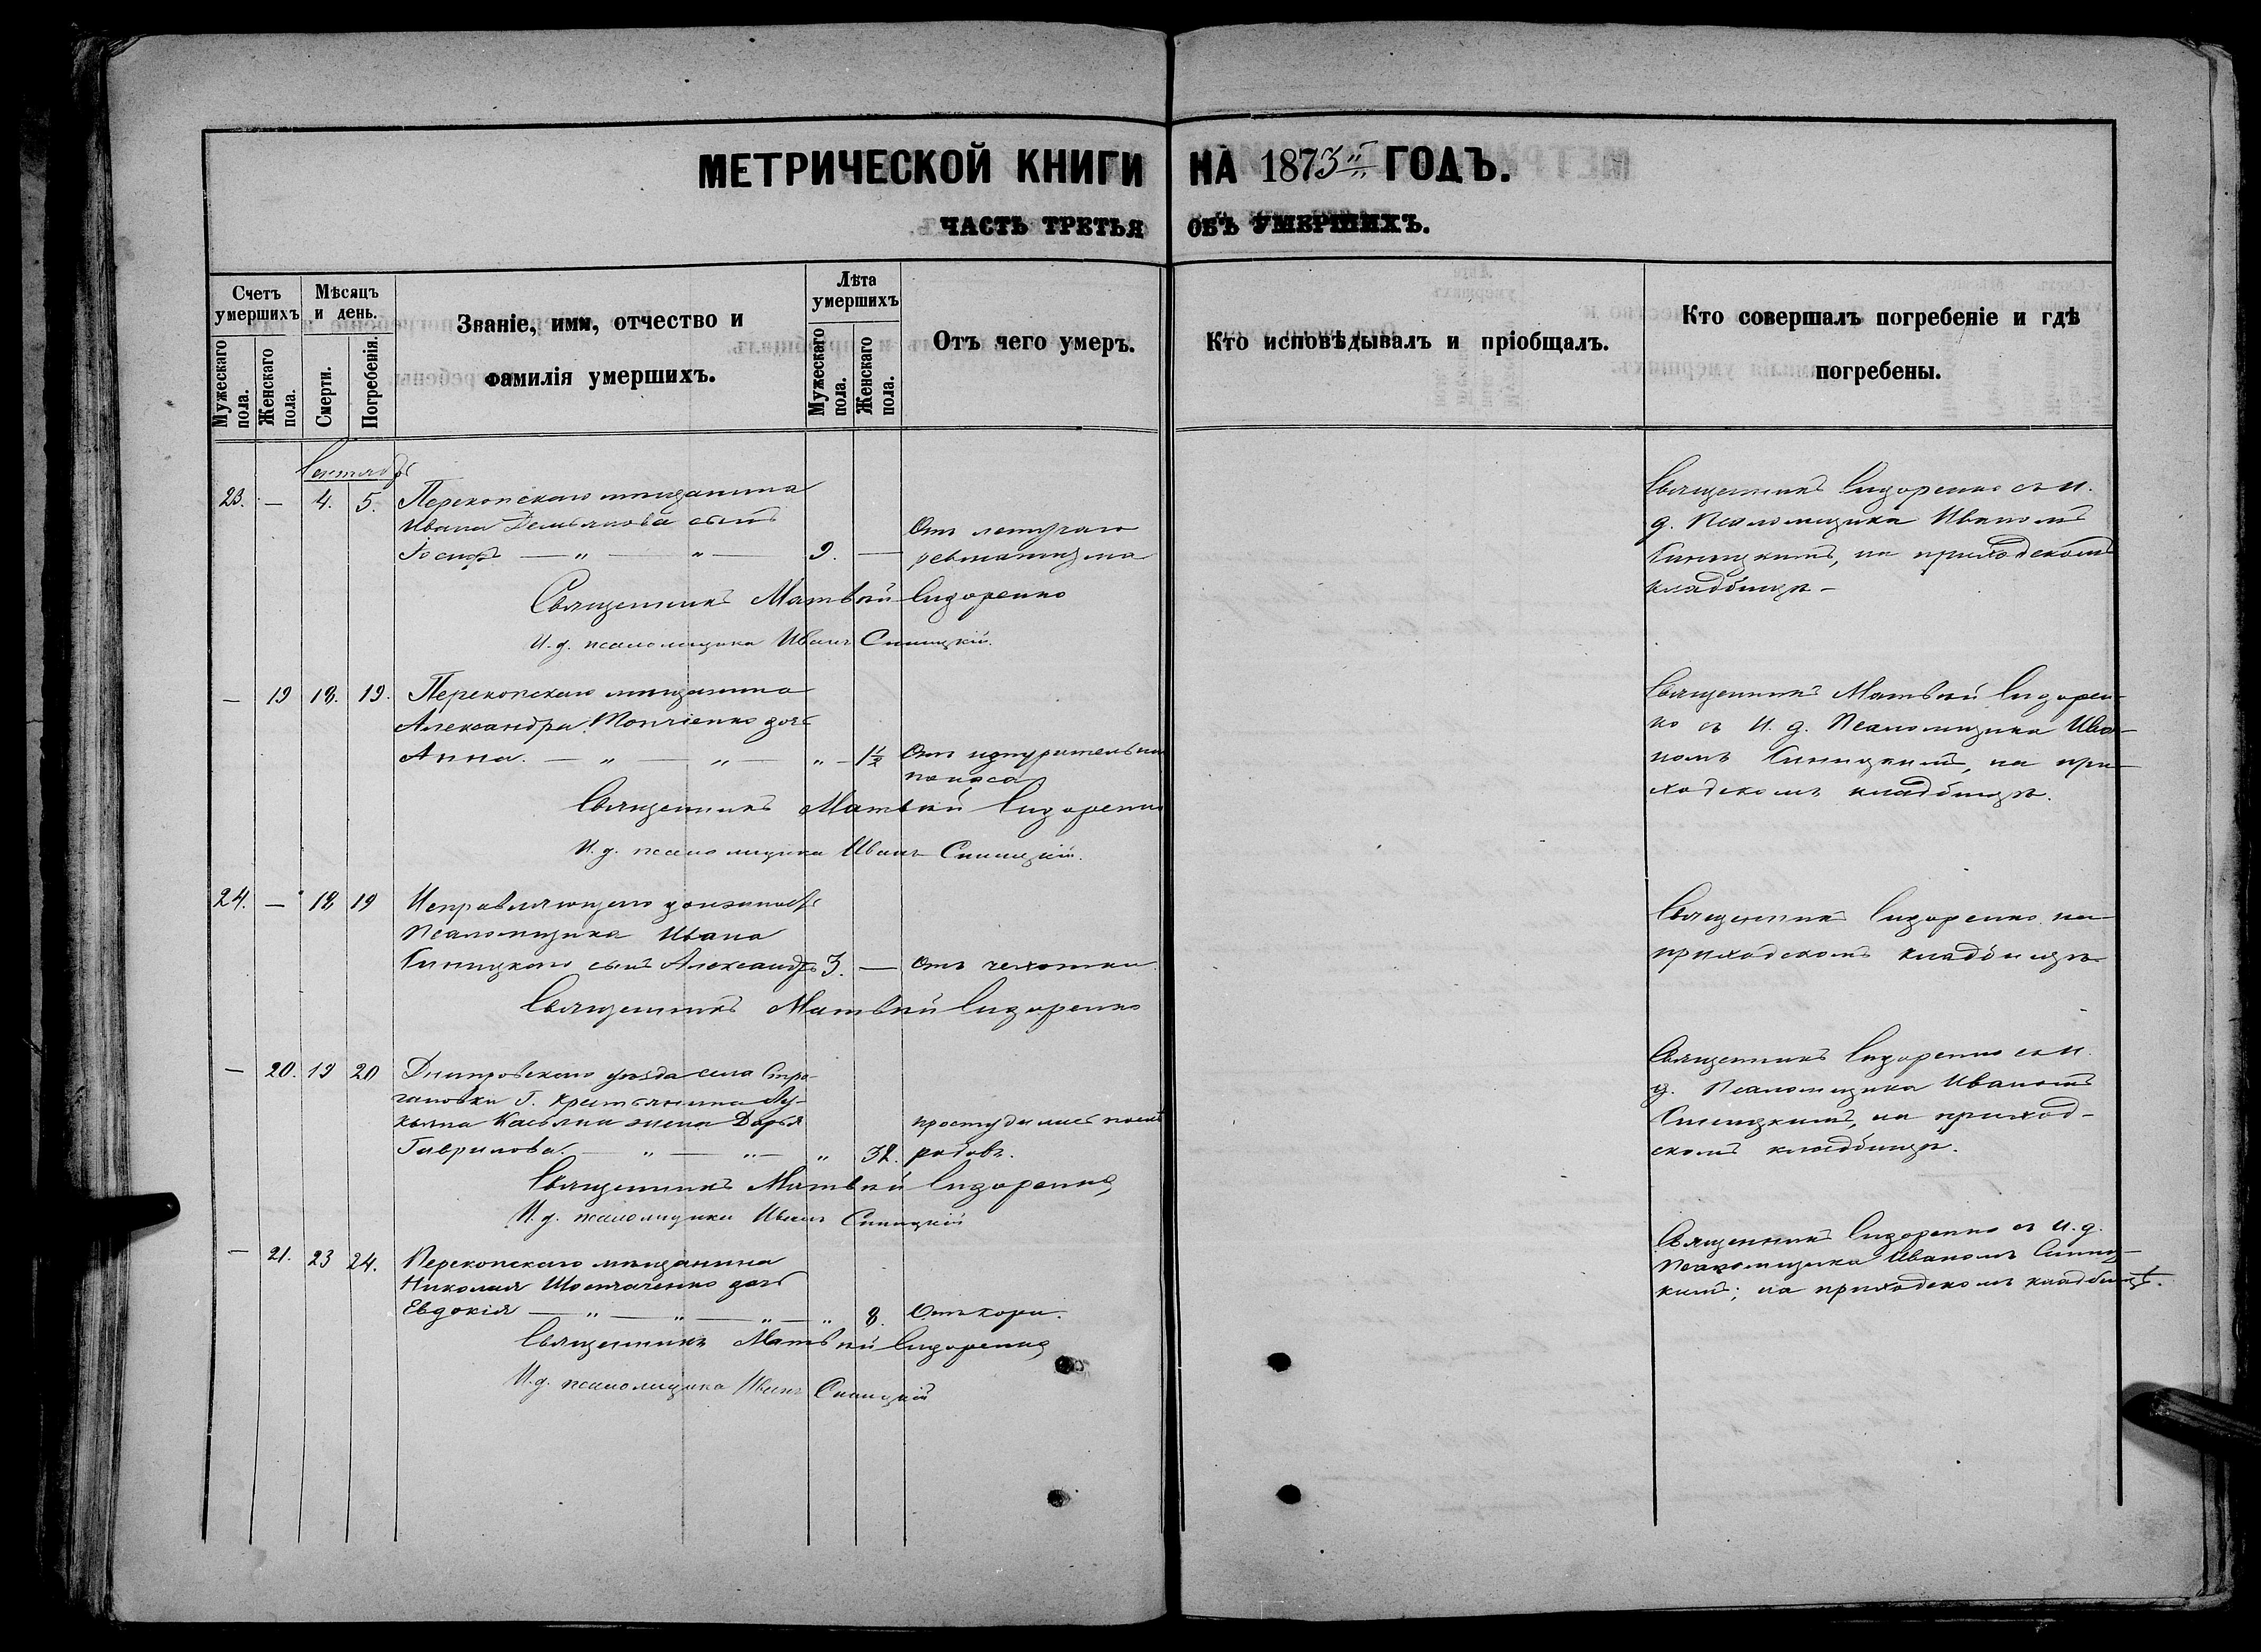 МЕТРИЧЕСКОЙ КНИГИ НА 1873й ГОДЪ.
ЧАСТЬ ТРЕТЬЯ ОБЪ УМЕРШИХЪ.
Счетъ умершихъ
Мужескаго пола.
Женскаго пола.
Мѣсяцъ и день.
Смерти.
Погребенія.
Званіе, имя, отчество и
фамилія умершихъ.
Лѣта умершихъ
Мужескаго пола.
Женскаго пола.
Отъ чего умеръ.
Кто исповѣдывалъ и пріобщалъ.
Кто совершалъ погребеніе и гдѣ
погребены.
Сентябрь
23. — 4. 5. Перекопскаго мѣщанина
Ивана Демьянова сынъ
Іосифъ — „ — „ — 9. —
Отъ летучаго
ревматизма
Священникъ Сидоренко съ И.
д. Псаломщика Иваномъ
Синицкимъ, на приходскомъ
кладбищѣ —
Священникъ Матвѣй Сидоренко
И. д. псаломщика Иванъ Синицкій.
— 19 18. 19. Перекопскаго мѣщанина
Александра дочь
Анна. — „ — „ — „ — 1½ Отъ изнурительнаго
поноса
Священникъ Матвѣй Сидорен-
ко съ И. д. Псаломщика Ива-
номъ Синицкимъ, на при-
ходскомъ кладбищѣ.
Священникъ Матвѣй Сидоренко
И. д. псаломщика Иванъ Синицкій.
24. — 18 19 Исправляющаго должность
Псаломщика Ивана
Синицкаго сынъ Александръ 3. — Отъ чахотки
Священникъ Сидоренко на
приходскомъ кладбищѣ
Священникъ Матвѣй Сидоренко
— 20. 19 20 Днѣпровскаго уѣзда села Стро-
гановки Г. Крестьянина Лу-
кьяна Касьяна жена Дарья
Гаврилова. — „ — „ — „ 32.
простудилась послѣ
родовъ.
Священникъ Сидоренко съ И.
д. Псаломщика Иваномъ
Синицкимъ, на приход-
скомъ кладбищѣ.
Священникъ Матвѣй Сидоренко
И. д. псаломщика Иванъ Синицкій
— 21. 23 24. Перекопскаго мѣщанина
Николая дочь
Евдокія — „ — „ — „ — „ 8. Отъ кори.
Священникъ Сидоренко съ И. д.
Псаломщика Иваномъ Синиц-
кимъ; на приходскомъ кладбищѣ.
Священникъ Матвѣй Сидоренко
И. д. псаломщика Иванъ Синицкій